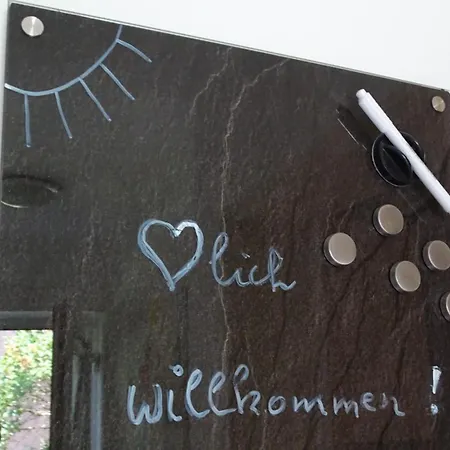 ♡lich
willkommen!